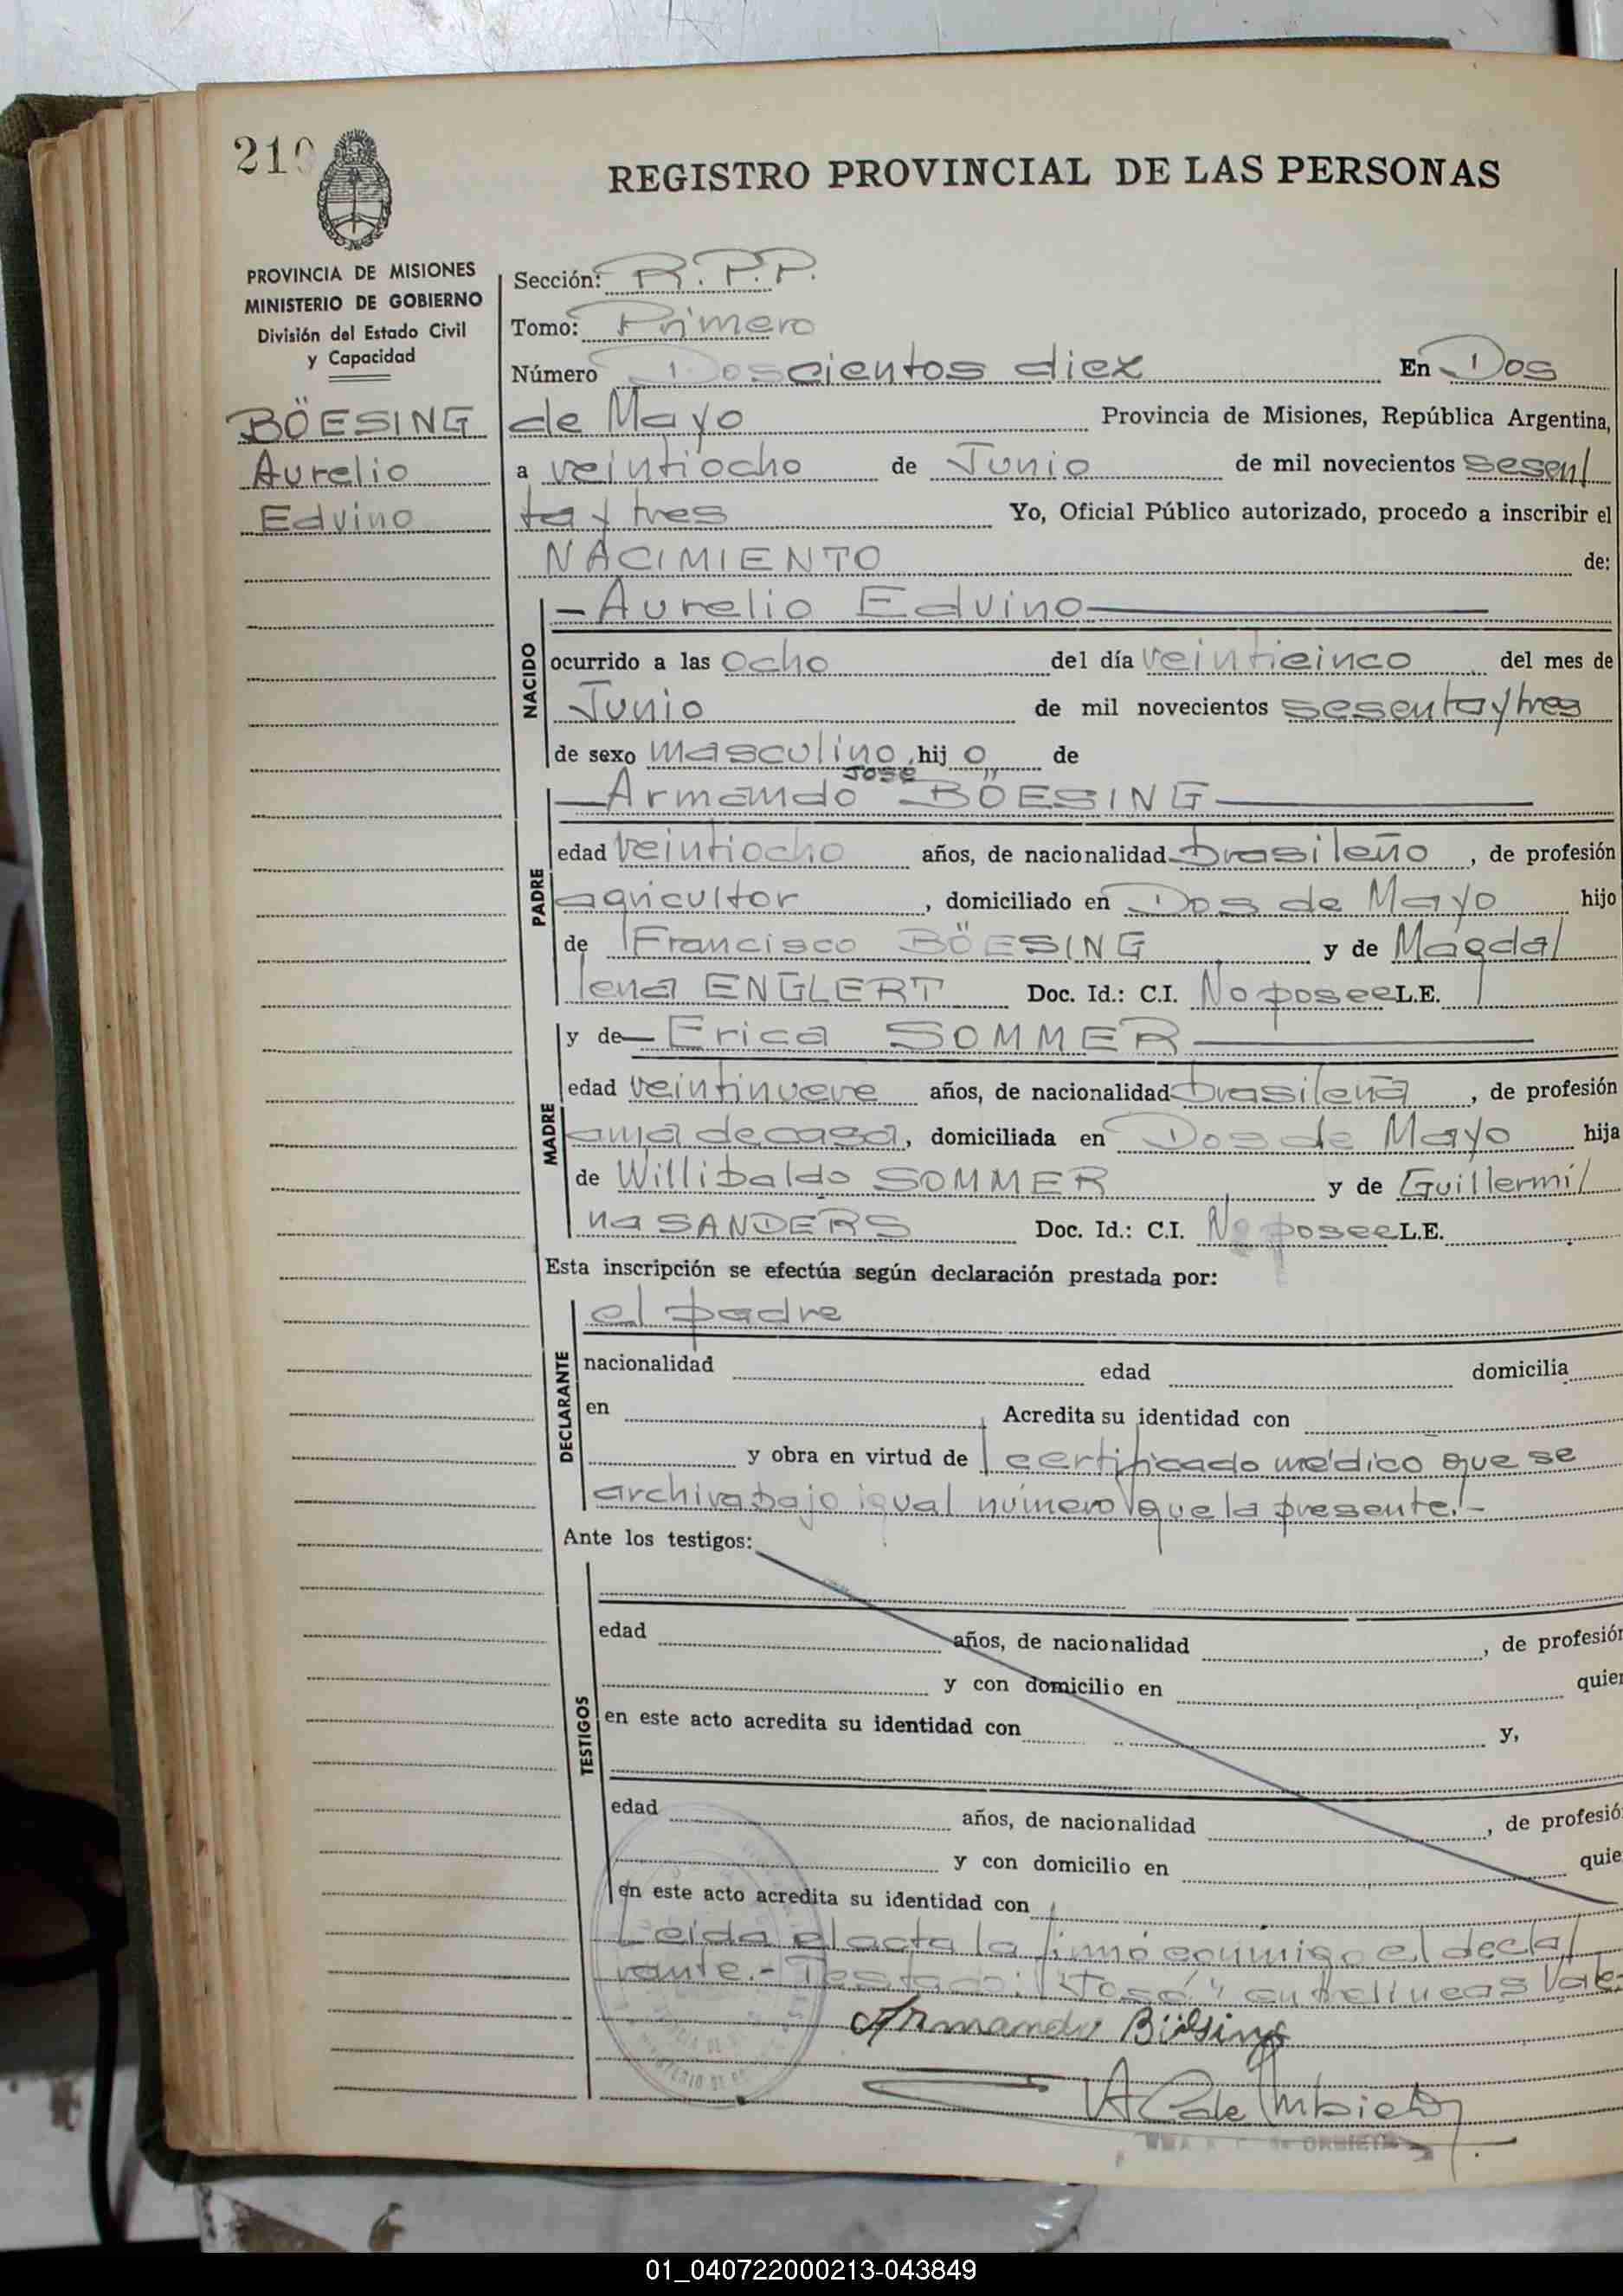 210
REGISTRO PROVINCIAL DE LAS PERSONAS
PROVINCIA DE MISIONES
MINISTERIO DE GOBIERNO
División del Estado Civil
y Capacidad
BÖESING
Aurelio
Edvino
Sección: R.P.P.
Tomo: Primero
Número Doscientos diez En Dos
de Mayo Provincia de Misiones, República Argentina,
a veintiocho de Junio de mil novecientos sesen/
ta y tres Yo, Oficial Público autorizado, procedo a inscribir el
NACIMIENTO de:
NACIDO
— Aurelio Edvino —
ocurrido a las Ocho del día veinticinco del mes de
Junio de mil novecientos sesenta y tres
de sexo masculino, hij o de
PADRE
José
— Armando BÖESING —
edad veintiocho años, de nacionalidad brasileño, de profesión
agricultor, domiciliado en Dos de Mayo hijo
de Francisco BÖESING y de Magda/
lena ENGLERT Doc. Id.: C.I. No posee L.E.
MADRE
y de — Erica SOMMER —
edad veintinueve años, de nacionalidad brasileña, de profesión
ama de casa, domiciliada en Dos de Mayo hija
de Willibaldo SOMMER y de Guillermi/
na SANDERS Doc. Id.: C.I. No posee L.E.
Esta inscripción se efectúa según declaración prestada por:
DECLARANTE
el padre
nacionalidad edad domicilia
en Acredita su identidad con
y obra en virtud de certificado médico que se
archiva bajo igual número que la presente.-
Ante los testigos:
TESTIGOS
edad años, de nacionalidad , de profesión
y con domicilio en quien
en este acto acredita su identidad con y,
edad años, de nacionalidad , de profesió
y con domicilio en quie
en este acto acredita su identidad con
Leída el acta la firmó conmigo el decla/
rante.- Testado: "José" entrelíneas Vale-
Armando Böesing
01_040722000213-043849